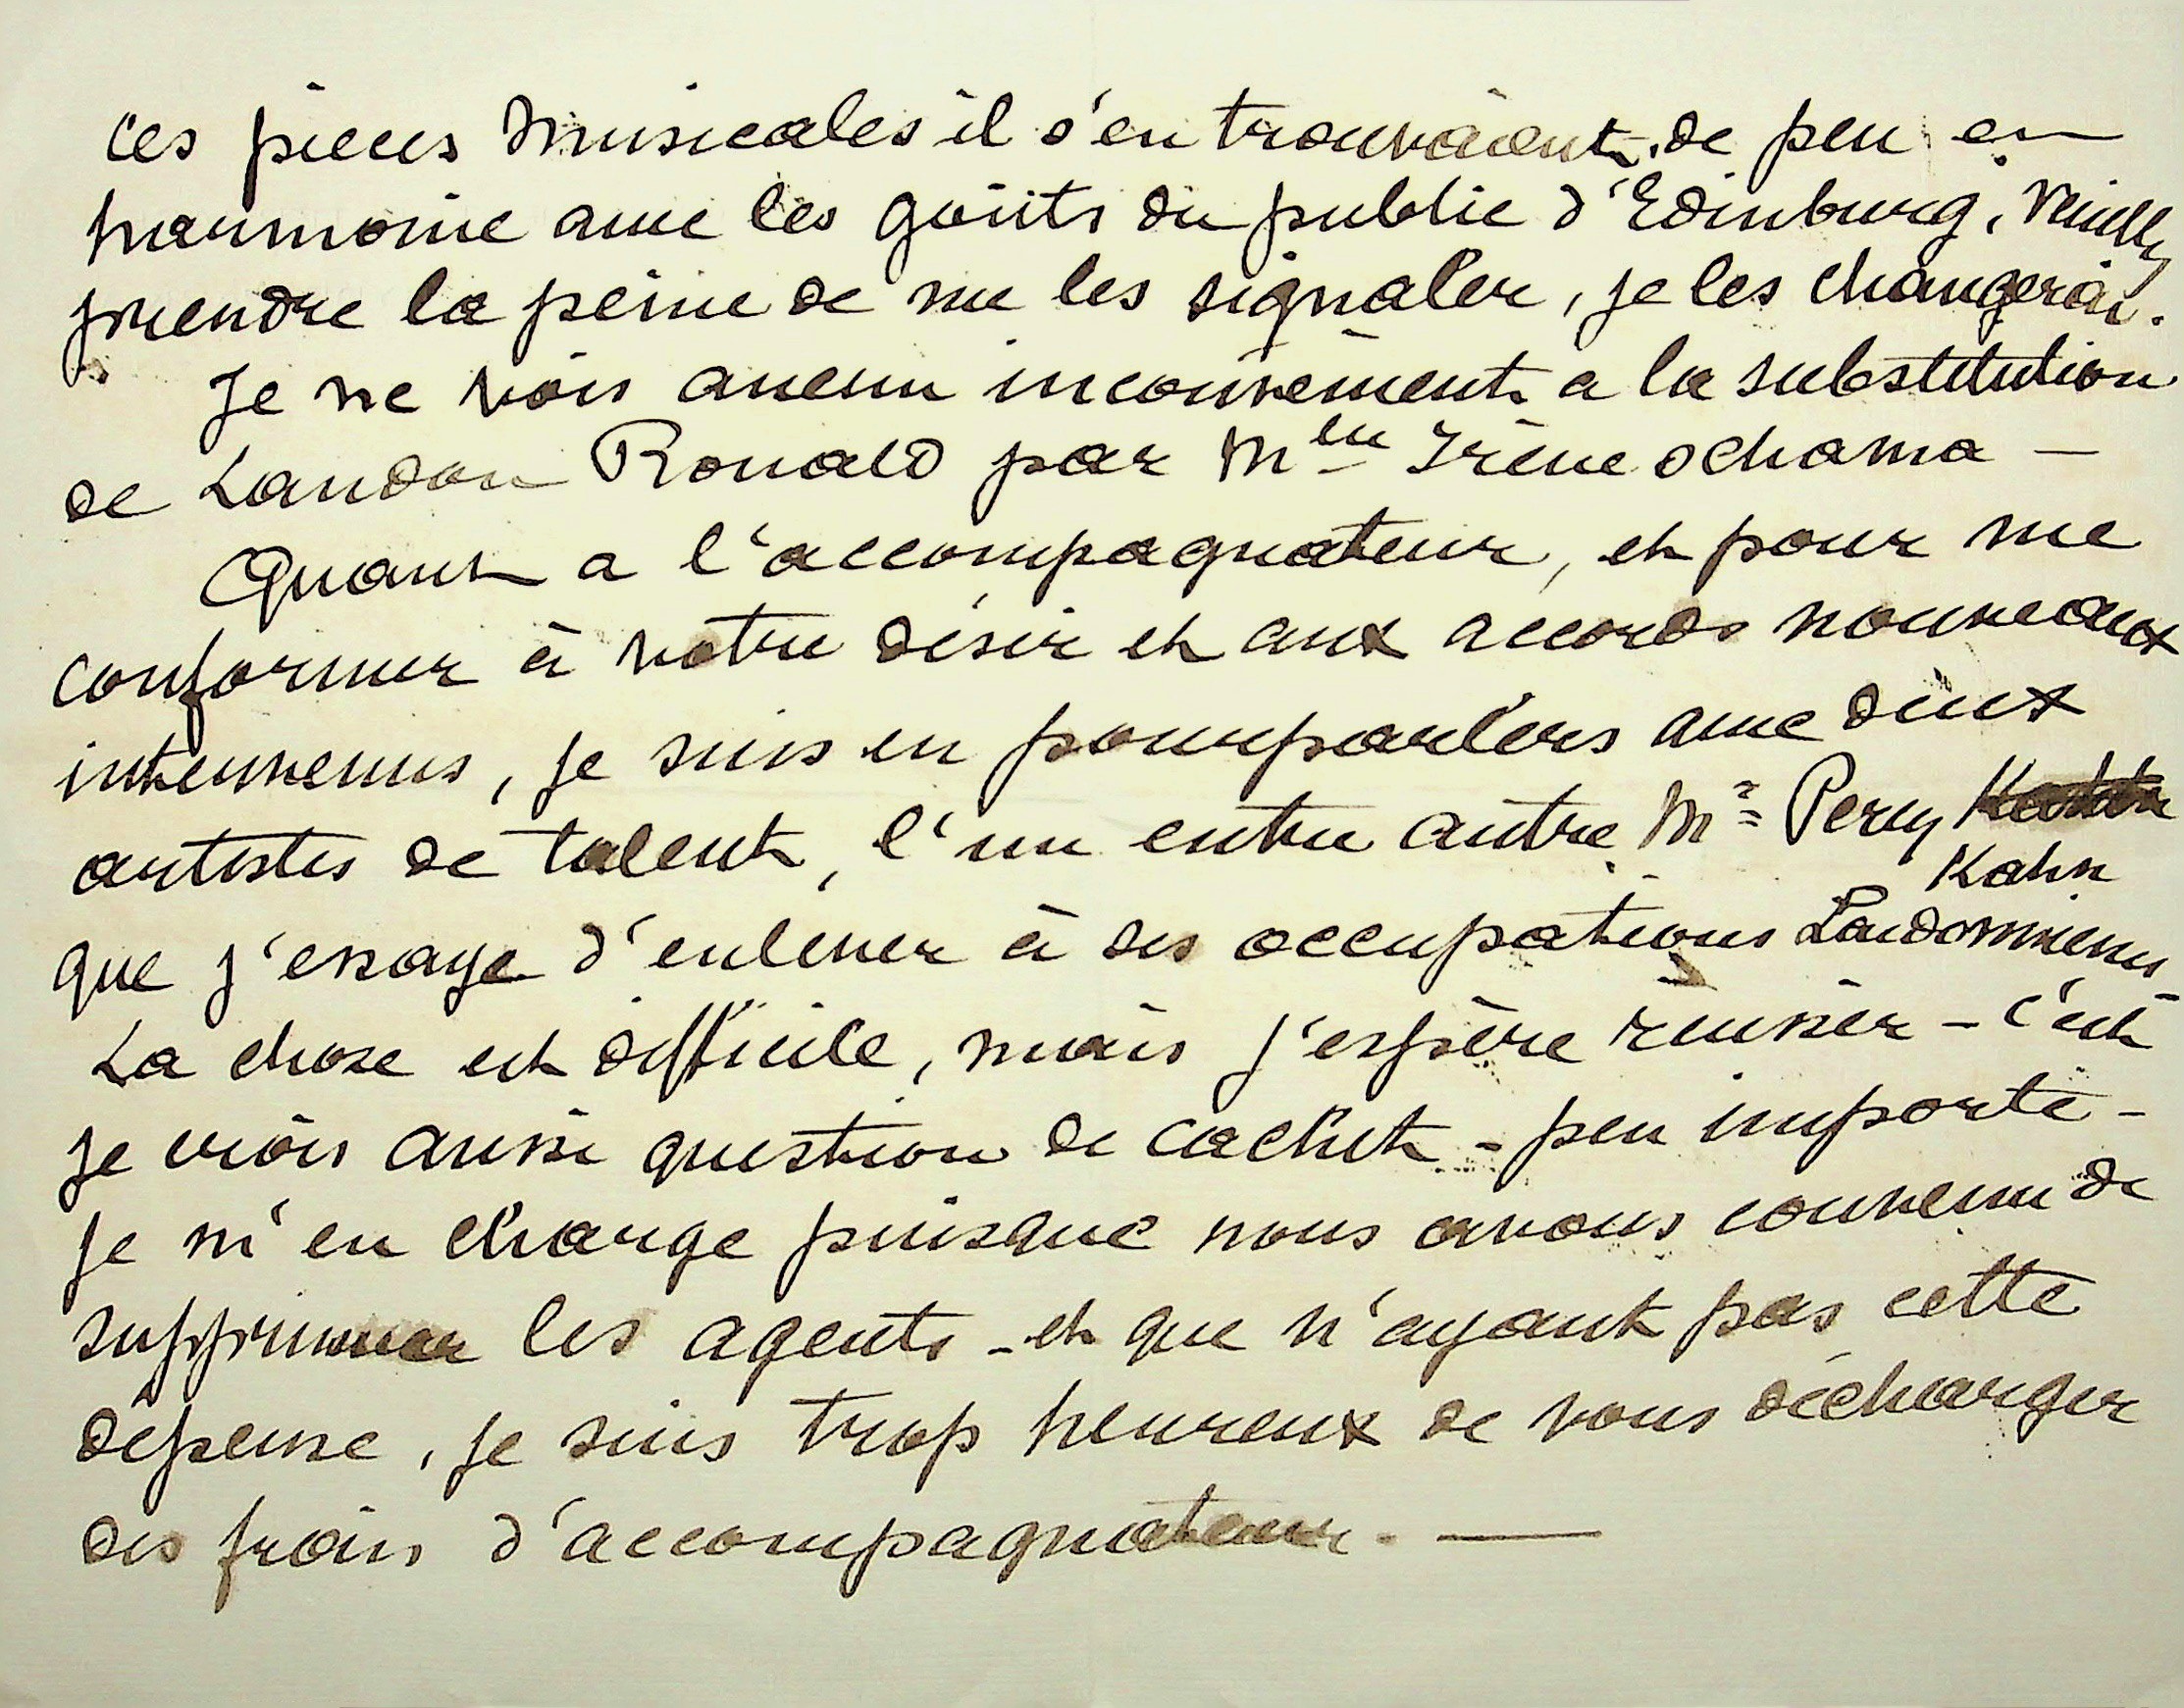 ces pièces musicales il s'en trouvaient de peu en
harmonie avec les goûts du public d'Edinburg, veuillez
prendre la peine de me les signaler, je les changerai.
Je ne vois aucun inconvénient a la substitution
de Landon Ronald par Mlle Irène Schama —
Quant a l'accompagnateur, et pour me
conformer à votre désir et aux accords nouveaux
intervenus, je suis en pourparlers avec deux
artistes de talent, l'un entre autre Mr Percy
Kahn
que j'essaye d'enlever à ses occupations Londonniennes
La chose est difficile, mais j'espère réussir - c'est
je crois aussi question de cachet - peu importe -
je m'en charge puisque nous avons convenu de
supprimer les agents - et que n'ayant pas cette
dépense, je suis trop heureux de vous décharger
des frais d'accompagnateur. —